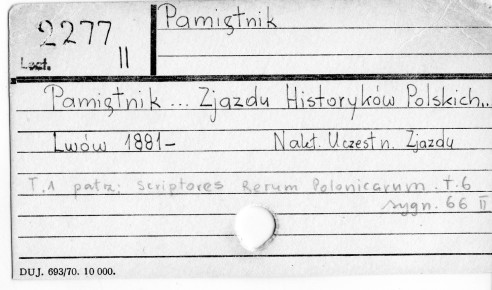 2277
II
Lect.
Pamiętnik
Pamiętnik ... Zjazdu Historyków Polskich..
Lwów 1881- Nakł. Uczestn. Zjazdu
T.1 patrz: Scriptores Rerum Polonicarum. t.6
sygn. 66 II
DUJ. 693/70. 10 000.